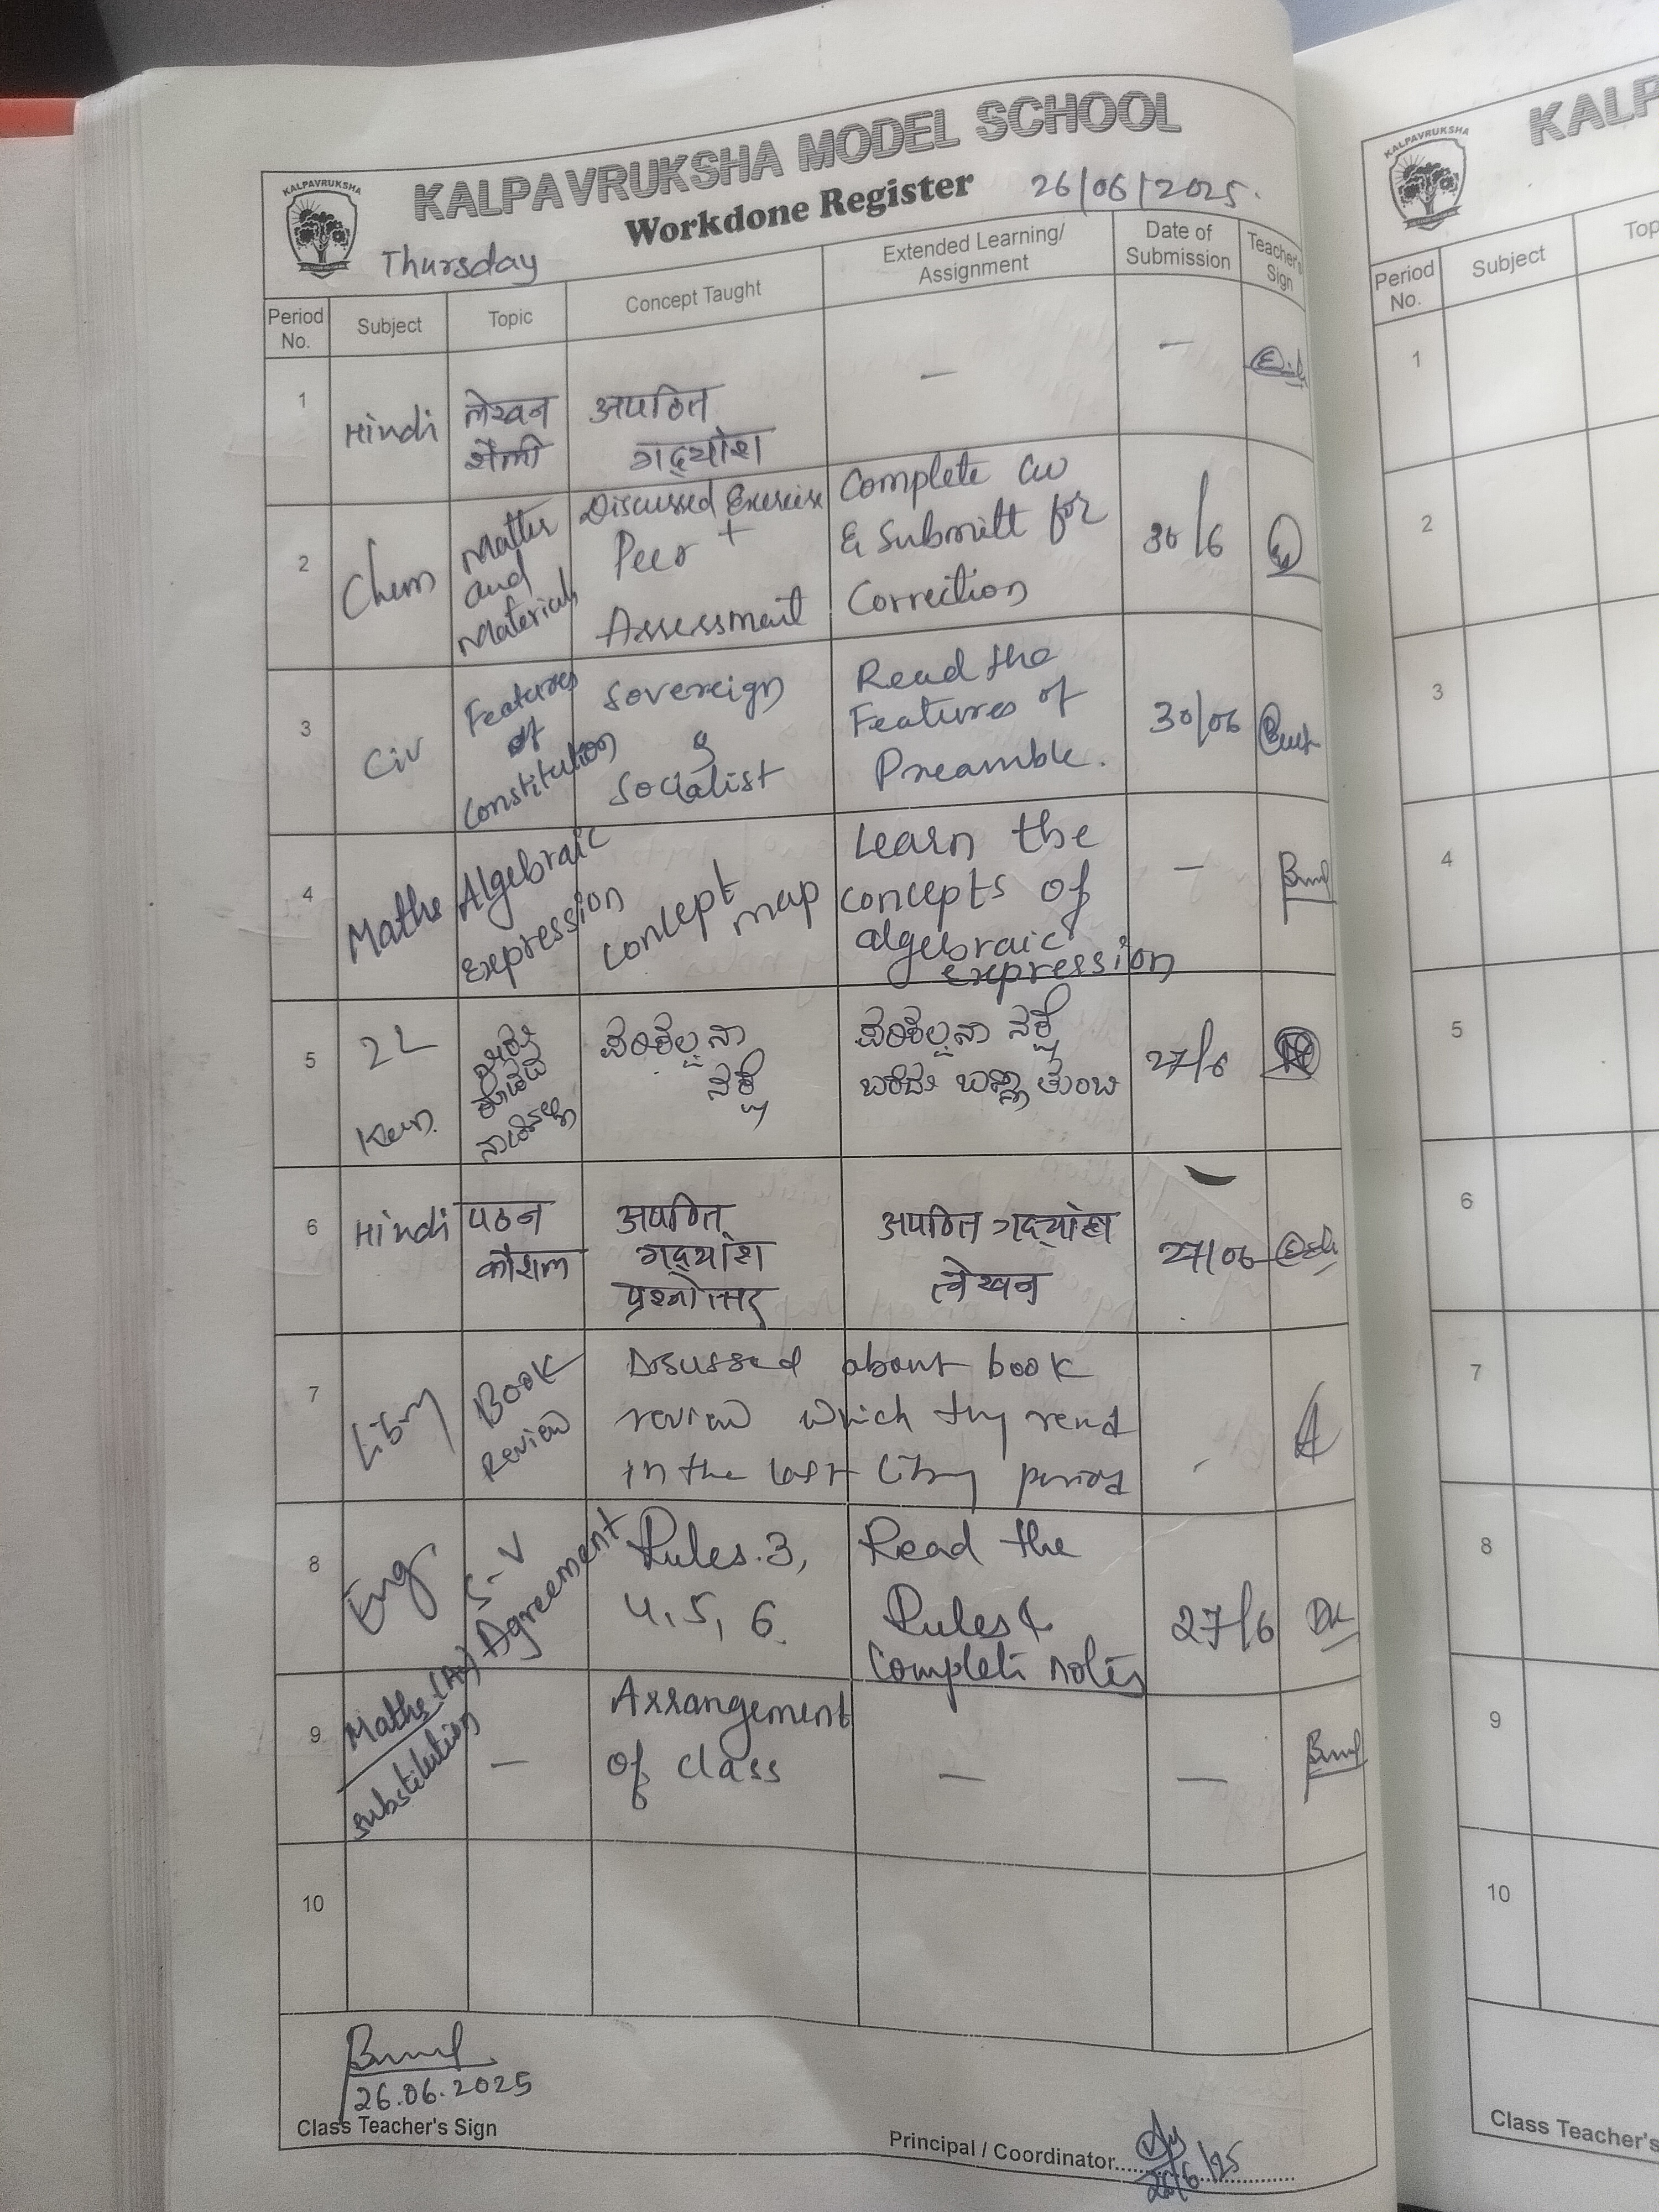 KALPAVRUKSHA
KALPAVRUKSHA MODEL SCHOOL
Workdone Register
26/06/2025.
Thursday
Period No.
Subject
Topic
Concept Taught
Extended Learning/
Assignment
Date of
Submission
Teacher's
Sign
1
Hindi
लेखन
शैली
अपठित
गद्यांश
—
—
2
Chem
Matter
and
Materials
Discussed Exercise
+
Peer
Assessment
Complete CW
& Submitt for
Correction
30/6
3
Civ
Features
of
Constitution
Sovereign
&
Socialist
Read the
Features of
Preamble.
30/06
4
Maths
Algebraic
Expression
concept
map
Learn the
concepts of
algebraic
expression
—
5
2L
Kan.
ಪರಿಕಲ್ಪನಾ
ನಕ್ಷೆ
ಪರಿಕಲ್ಪನಾ ನಕ್ಷೆ
ಬರೆದು ಬಣ್ಣ ತುಂಬಿ
27/6
6
Hindi
पठन
कौशल
अपठित
गद्यांश
प्रश्नोत्तर
अपठित गद्यांश
लेखन
27/06
7
Library
Book
Review
Discussed about book
review which they read
in the last library period
8
Eng
S-V
Agreement
Rules.3,
4, 5, 6.
Read the
Rules &
Complete notes
27/6
9
Maths
substitution
—
Arrangement
of class
—
—
10
26.06.2025
Class Teacher's Sign
Principal / Coordinator
26/6/25
KALPAVRUKSHA
KALP
Period
No.
Subject
Top
1
2
3
4
5
6
7
8
9
10
Class Teacher's